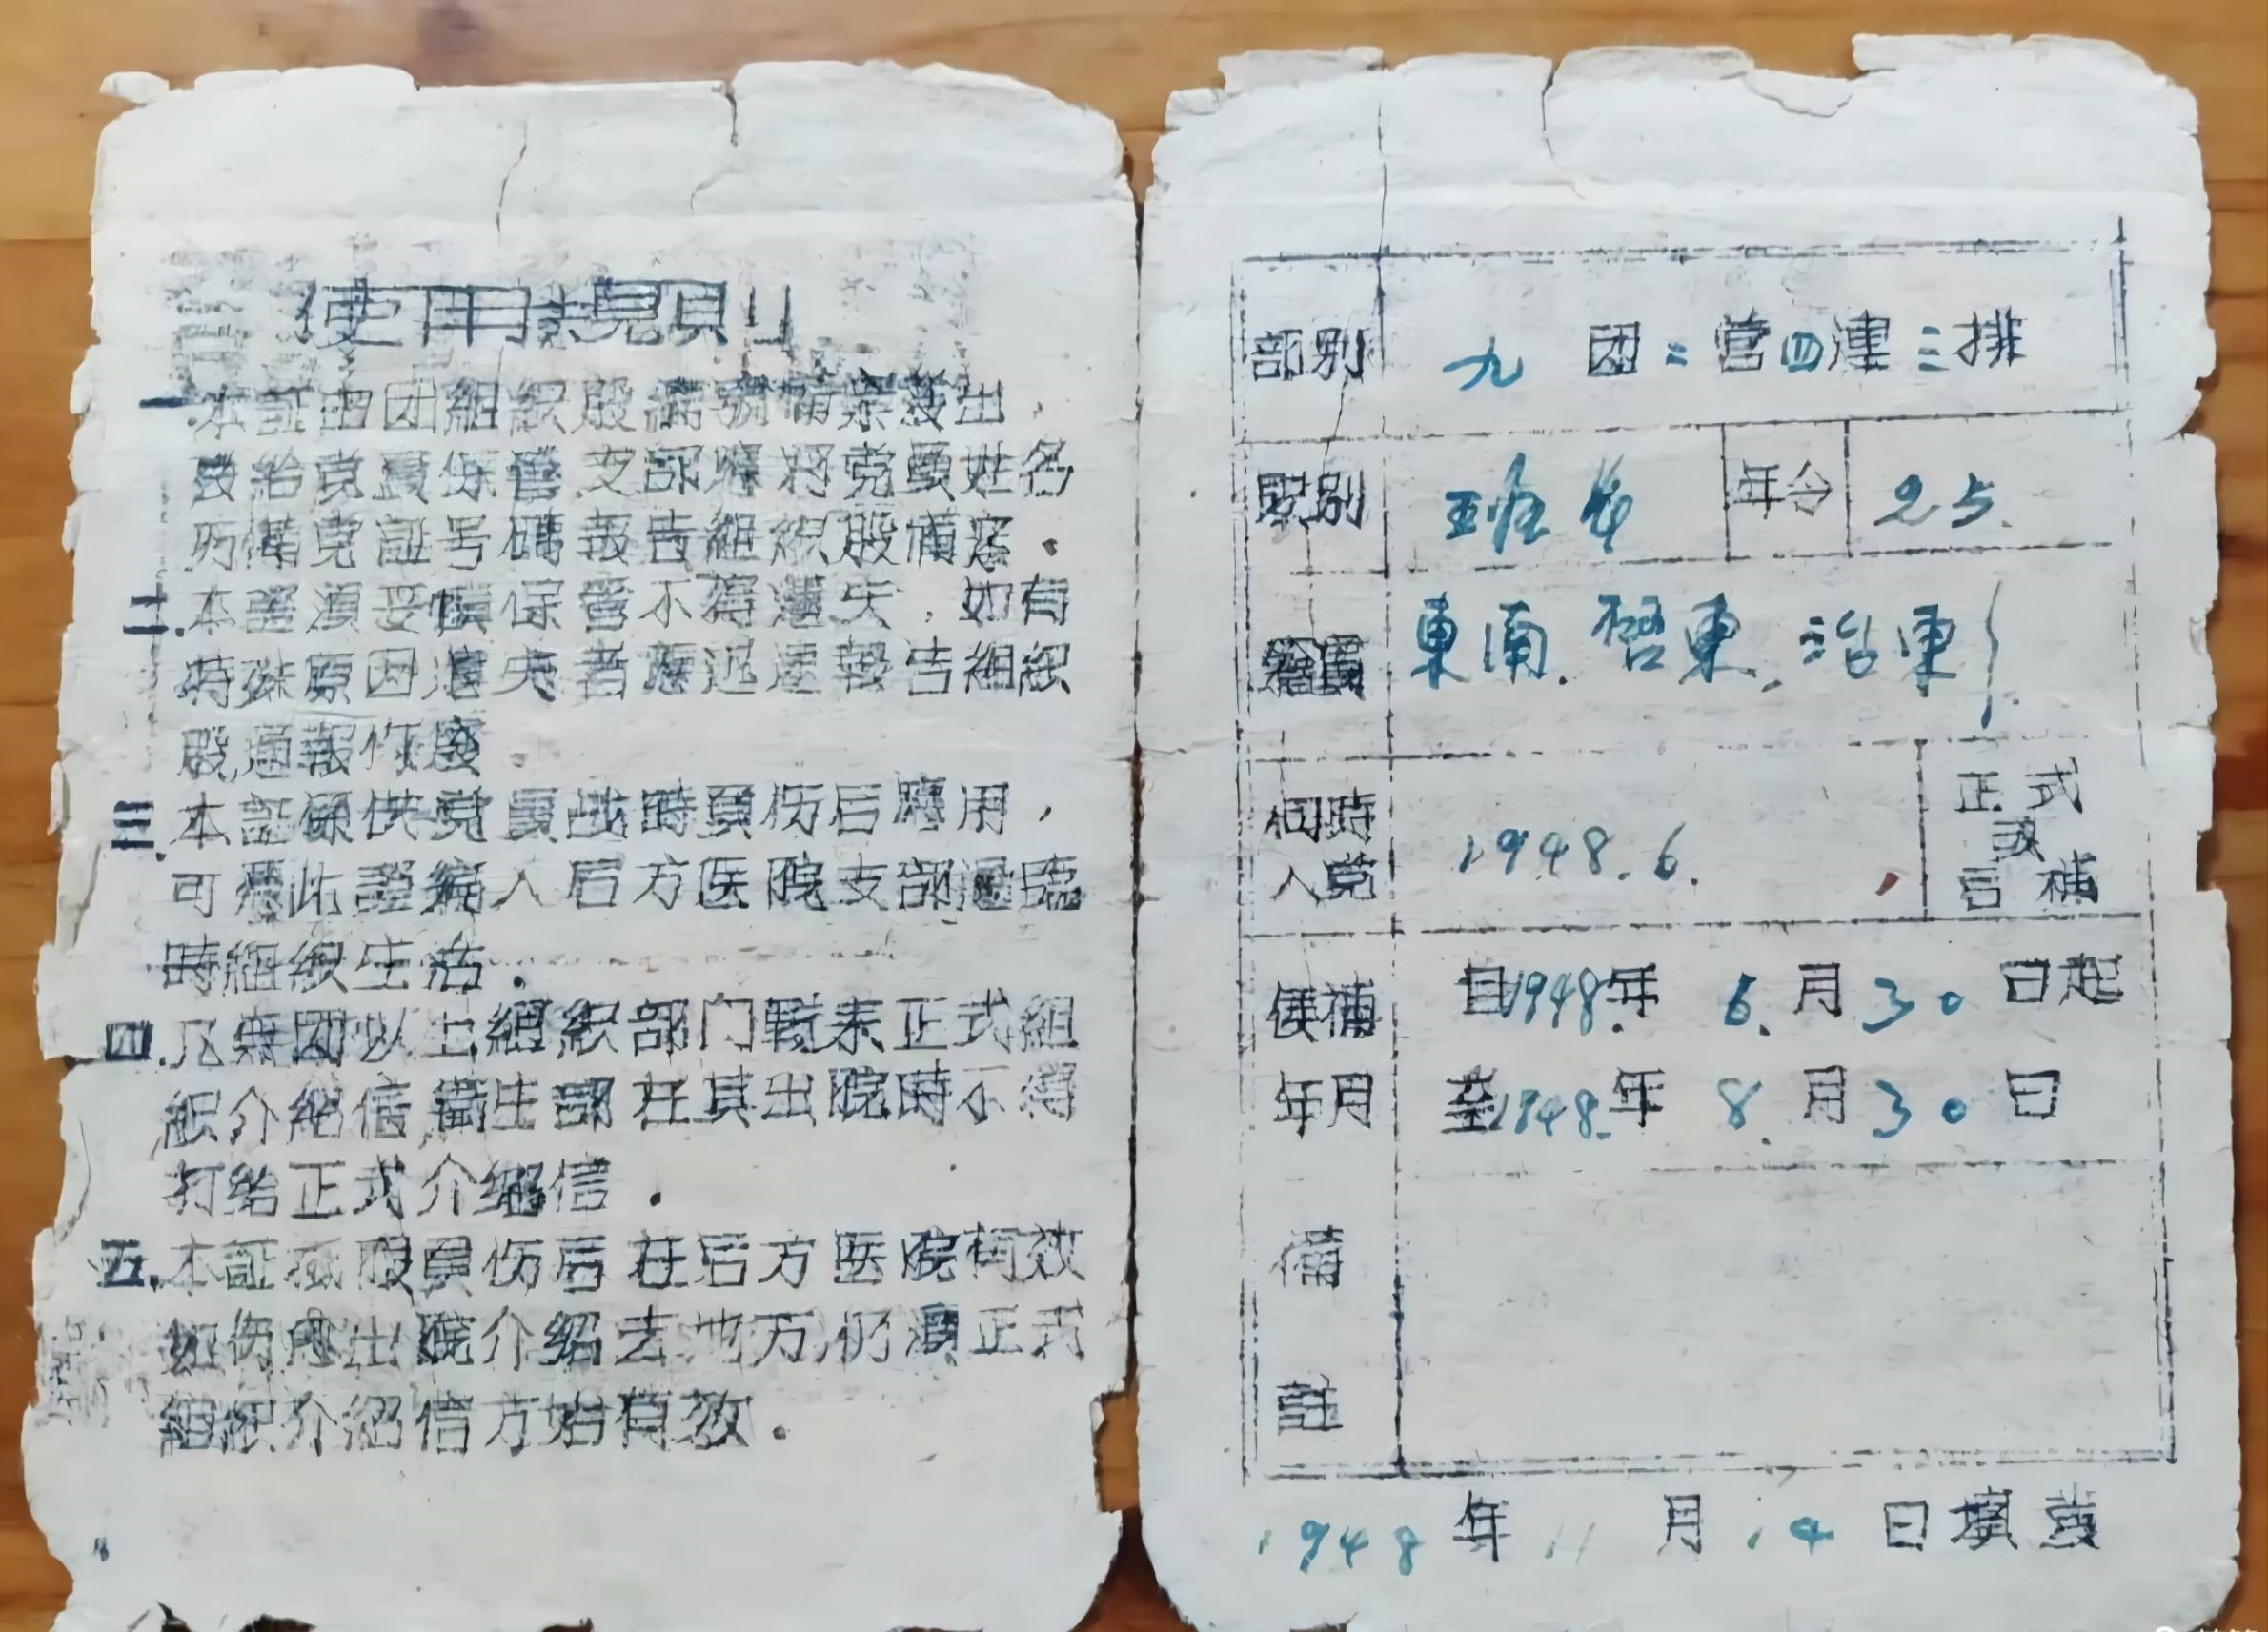 使用規則
一.本証由团組織股編號備案發出,
發給党員保管支部應將党員姓名
所備党証号碼報告組織股備案.
二.本證須妥慎保管不得遺失,如有
特殊原因遺失者應迅速報告組織
股,通報作廢.
三.本証係供党員战時負伤后應用,
可憑此證編入后方医院支部過臨
時組織生活.
四.凡無团以上組織部门轉来正式組
織介紹信,衛生部在其出院時不得
打給正式介紹信.
五.本証祗限負伤后在后方医院有效
如伤愈出院介紹去地方,仍須正式
組織介紹信方始有效.
部别 九 团二营四連三排
职别 班长 年令 25.
籍貫 東南.啓東.治東
何時入党 1948.6. 正式或后補
候補年月 自1948.年6.月30日起
至1948.年8.月30日
備註
1948年11月14日填發